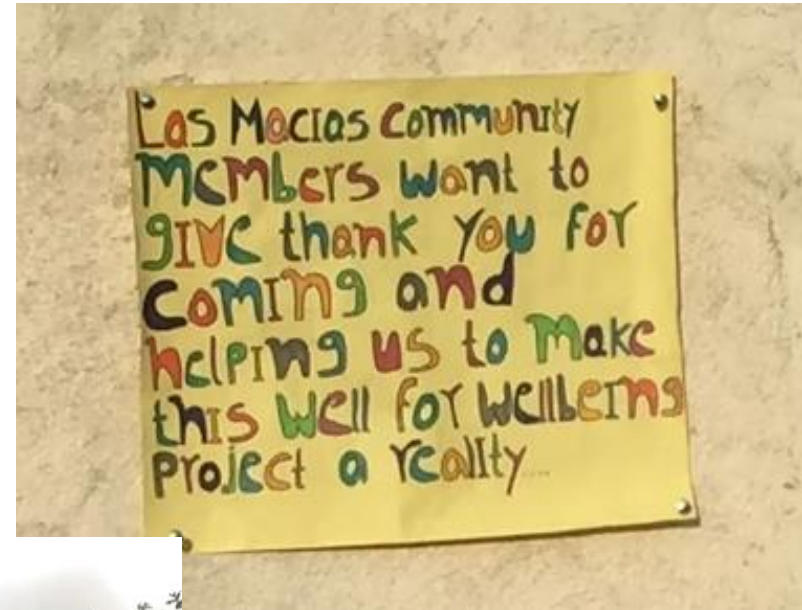 Las Macias Community
Members want to
give thank you for
coming and
helping us to make
this well for wellbeing
project a reality...